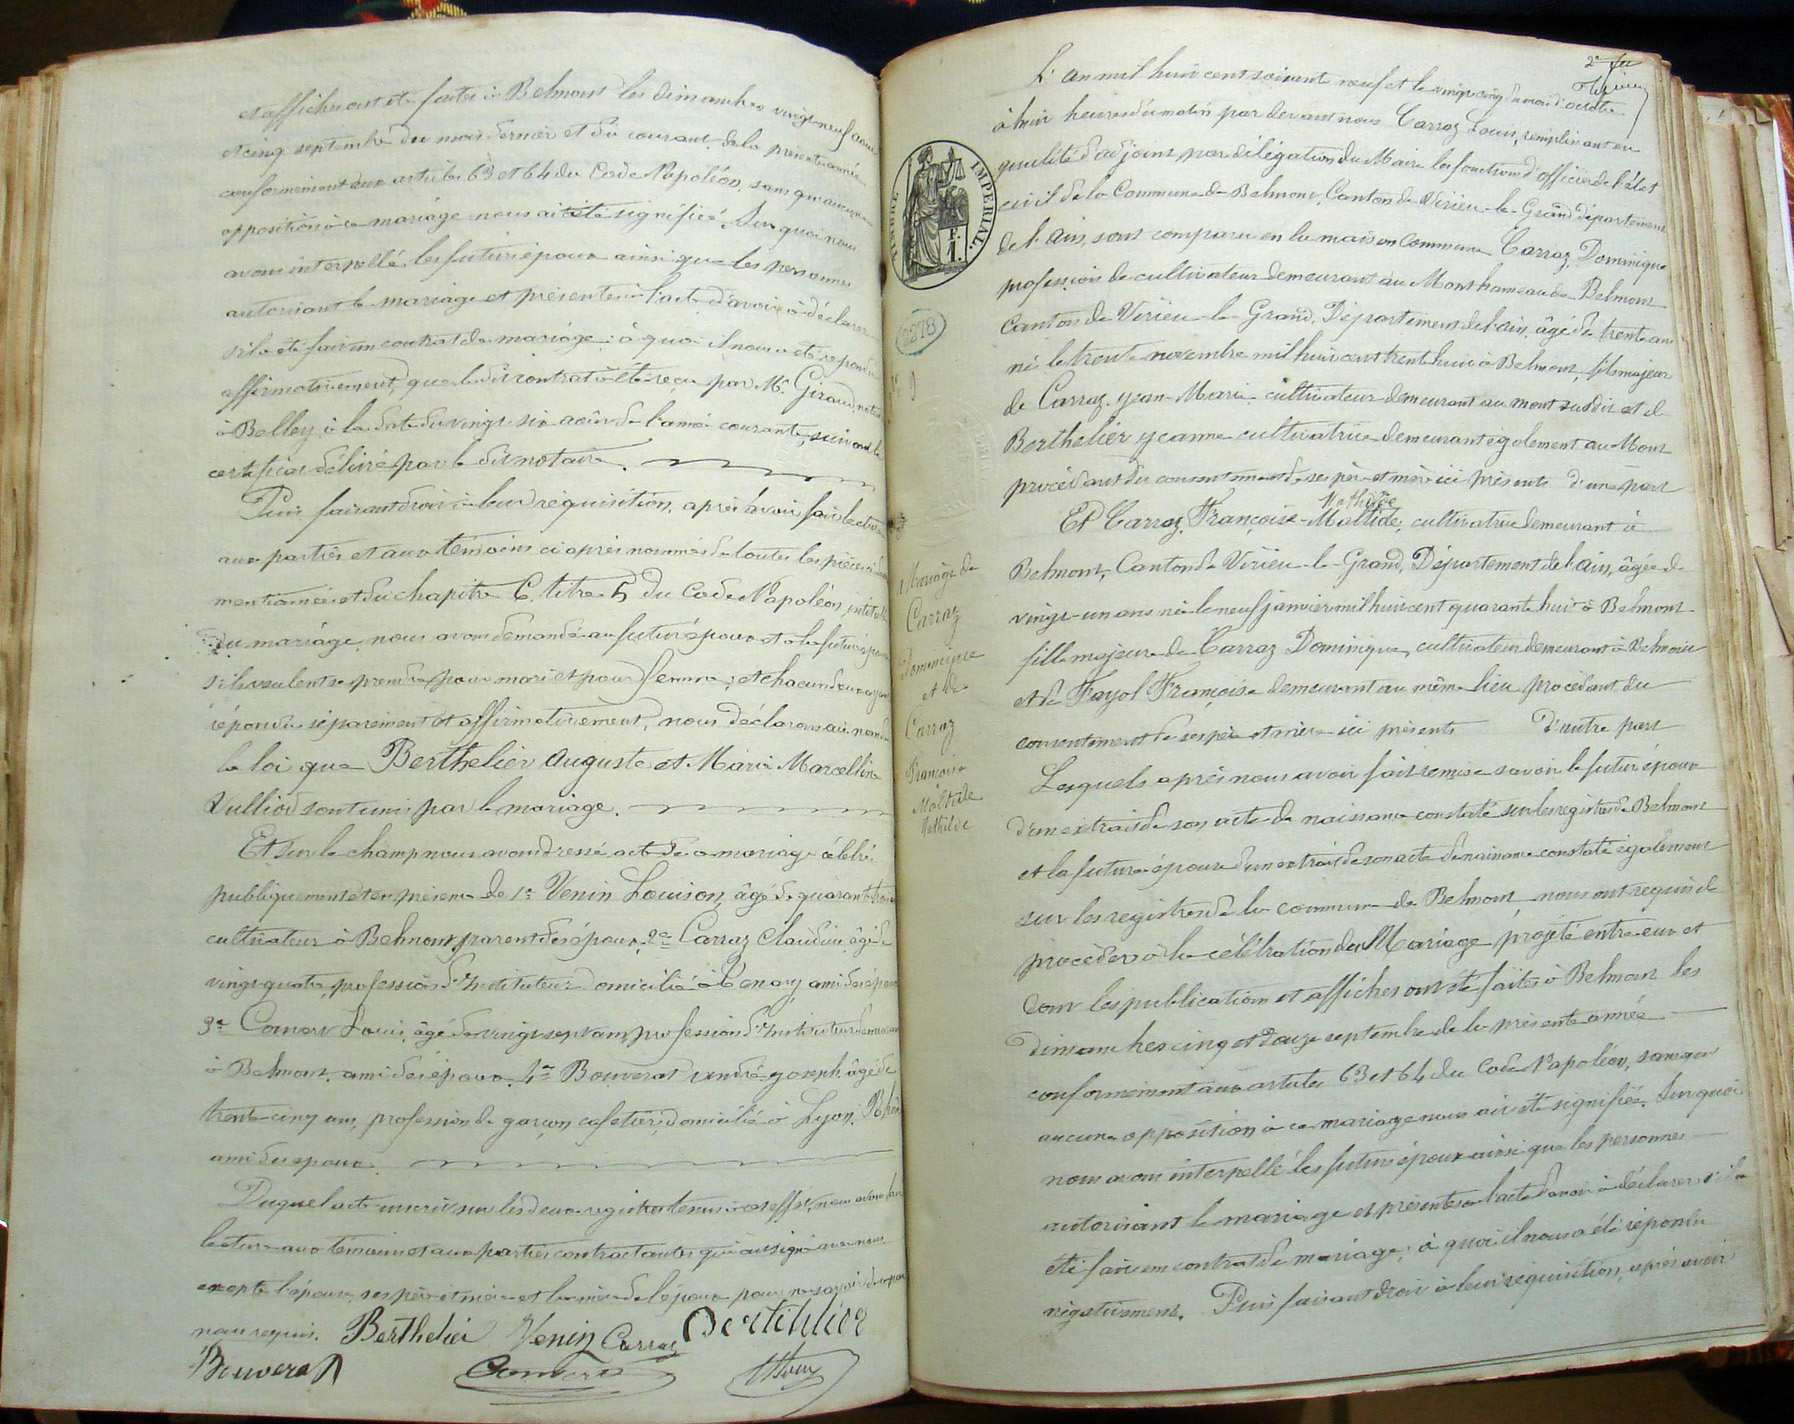 et affiches ont été faites à Belmont les dimanches vingt-neuf août
et cinq septembre du mois dernier et du courant de la présente année
conformément aux articles 63 et 64 du Code Napoléon, sans qu'aucune
opposition à ce mariage nous ait été signifiée. Sur quoi nous
avons interpellé les futurs époux ainsi que les personnes
autorisant le mariage et présentes à l'acte d'avoir à déclarer
s'il a été fait un contrat de mariage; à quoi il nous a été répondu
affirmativement, que ledit contrat a été reçu par Me Giraud, notaire
à Belley à la date du vingt six août de l'année courante, suivant le
certificat délivré par le dit notaire.
Puis faisant droit à leur réquisition, après avoir fait lecture
aux parties et aux témoins ci après nommés de toutes les pièces ci dessus
mentionnées et du chapitre 6 titre 5 du Code Napoléon, intitulé
Du mariage, nous avons demandé au futur époux et à la future épouse
s'ils veulent se prendre pour mari et pour femme; et chacun d'eux ayant
répondu séparément et affirmativement, nous déclarons au nom de
la loi que Berthelier Auguste et Marie Marcelline
Vulliod sont unis par le mariage.
Et sur le champ nous avons dressé acte de ce mariage célébré
publiquement et en présence de 1° Venin Louison, âgé de quarante
cultivateur à Belmont parent des époux, 2° Carraz Claudius âgé de
vingt quatre, profession d'Instituteur domicilié à Tenay ami des époux
3° Convert Louis, âgé de vingt sept ans, profession d'Instituteur demeurant
à Belmont, ami des époux. 4° Bouverat André-Joseph, âgé de
trente-cinq ans, profession de garçon cafetier, domicilié à Lyon, Rhône
ami des époux.
Duquel acte inscrit sur les deux registres tenus à cet effet, nous avons fait
lecture aux témoins et aux parties contractantes qui ont signé avec nous
excepté l'épouse, ses père et mère et la mère de l'époux pour ne savoir de ce par
nous requis. Berthelier Venin Carraz Berthelier
Bouverat Convert
2e
L'an mil huit cent soixante neuf et le vingt cinq du mois d'octobre
à huit heures du matin par devant nous Carraz Louis, remplissant en
qualité d'adjoint par délégation du Maire les fonctions d'officier de l'état
civil de la Commune de Belmont, Canton de Virieu-le-Grand département
de l'Ain, sont comparu en la maison Commune Carraz, Dominique
profession de cultivateur demeurant au Mont hameau de Belmont
Canton de Virieu-le-Grand, Département de l'Ain, âgé de trente ans
né le trente novembre mil huit cent trente huit à Belmont, fils majeur
de Carraz Jean-Marie cultivateur demeurant au Mont susdit et de
Berthelier Jeanne cultivatrice demeurant également au Mont
procédant du consentement de ses père et mère ici présents d'une part
Mathilde
Et Carraz, Françoise-Maltide, cultivatrice demeurant à
Belmont, Canton de Virieu-le-Grand, Département de l'Ain, âgée de
vingt-un ans née le neuf janvier mil huit cent quarante huit à Belmont
fille majeure de Carraz Dominique, cultivateur demeurant à Belmont
et de Fayol Françoise demeurant au même lieu procédant du
consentement de ses père et mère ici présents D'autre part
Lesquels après nous avoir fait remise savoir le futur époux
d'un extrait de son acte de naissance constaté sur les registres de Belmont
et la future épouse d'un extrait de son acte de naissance constaté également
sur les registres de la commune de Belmont, nous ont requis de
procéder à la célébration du Mariage projeté entre eux et
dont les publications et affiches ont été faites à Belmont les
dimanches cinq et douze septembre de la présente année
conformément aux articles 63 et 64 du Code Napoléon, sans qu'
aucune opposition à ce mariage nous ait été signifiée. Sur quoi
nous avons interpellé les futurs époux ainsi que les personnes
autorisant le mariage et présentes à l'acte d'avoir à déclarer s'il a
été fait un contrat de mariage; à quoi il nous a été répondu
négativement. Puis faisant droit à leur réquisition, après avoir
TIMBRE IMPERIAL.
F.
1.
Mariage de
Carraz
Dominique
et de
Carraz
Françoise
Maltide
Mathilde